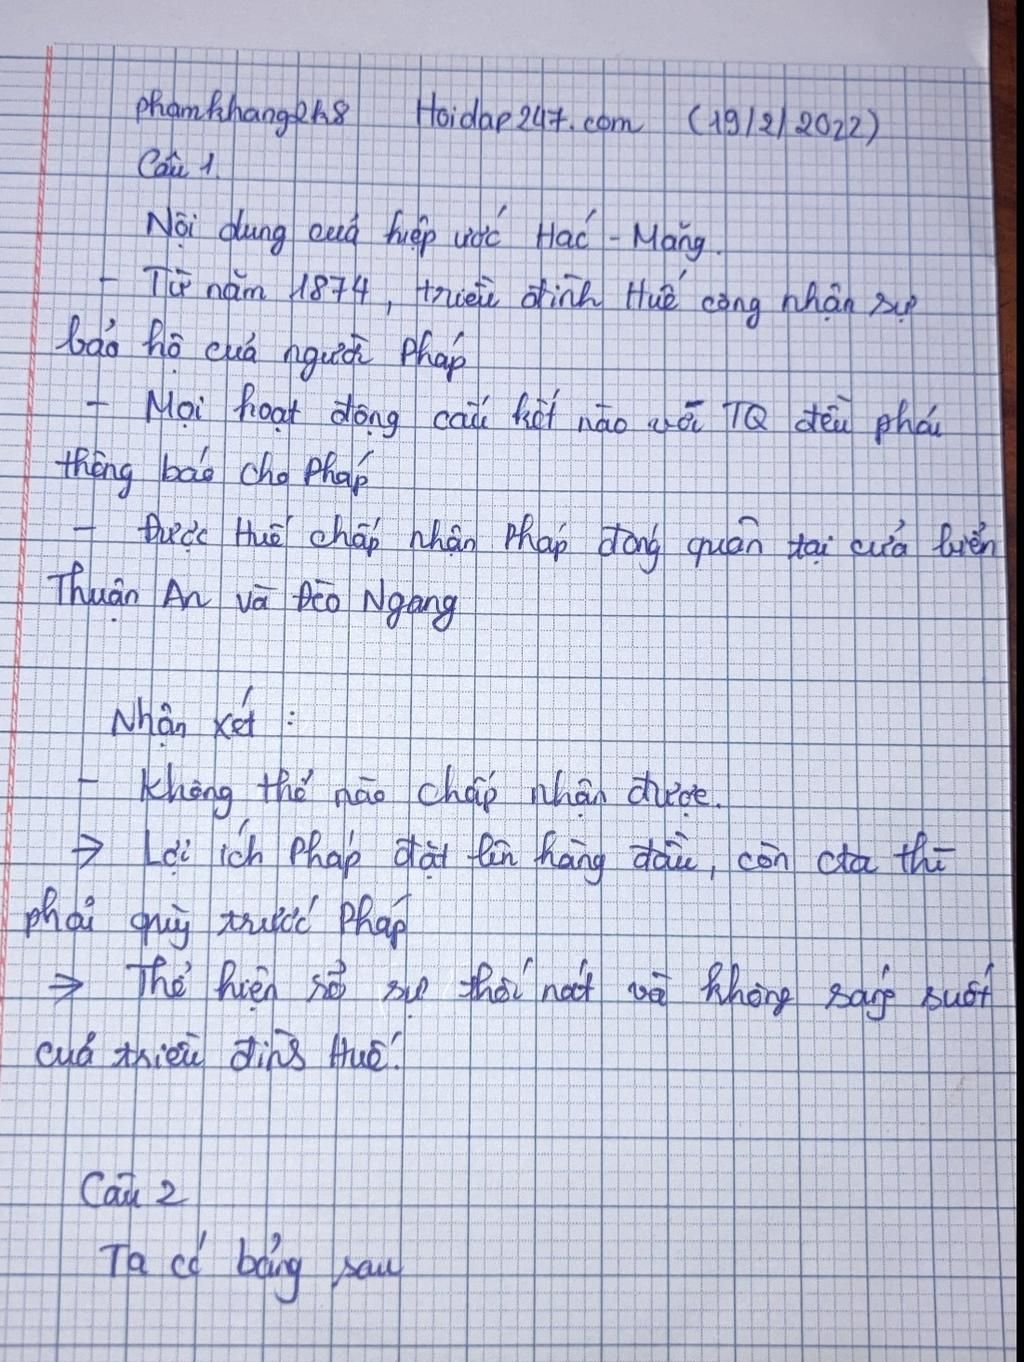 phamkhang2k8 Hoidap247.com (19/2/2022)
Câu 1.
Nội dung của hiệp ước Hác - Măng.
- Từ năm 1874, triều đình Huế công nhận sự
bảo hộ của người Pháp
- Mọi hoạt động cấu kết nào với TQ đều phải
thông báo cho Pháp
- Được Huế chấp nhận Pháp đóng quân tại cửa biển
Thuận An và Đèo Ngang
Nhận xét :
- Không thể nào chấp nhận được.
→ Lợi ích Pháp đặt lên hàng đầu, còn cta thì
phải quỳ trước Pháp
→ Thể hiện sổ sự thối nát và không sáng suốt
của triều đình Huế.
Câu 2
Ta có bảng sau